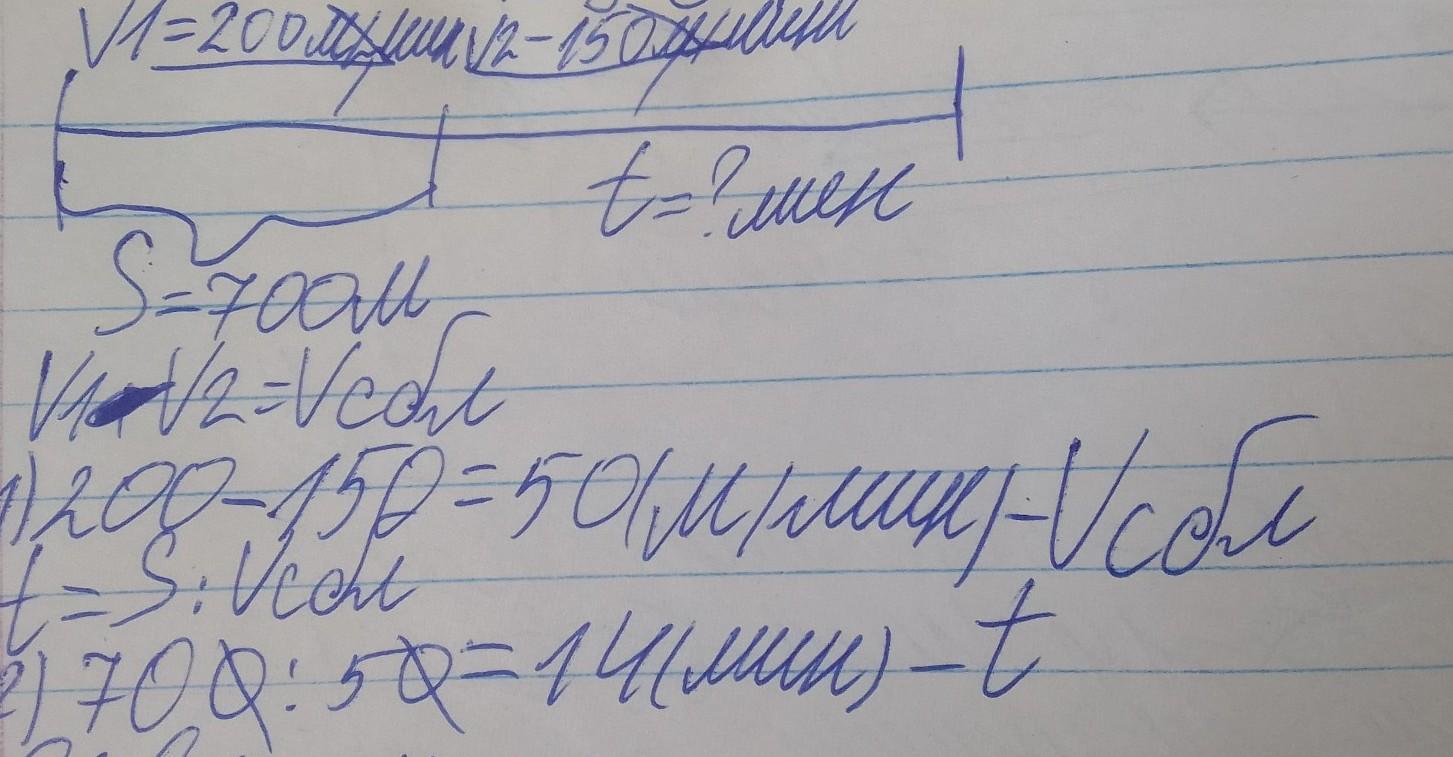 V1=200м/мин V2-150м/мин
t=?мин
S=700м
V1-V2=Vсбл
1)200-150=50(м/мин)-Vсбл
t=S:Vсбл
2)700:50=14(мин)-t